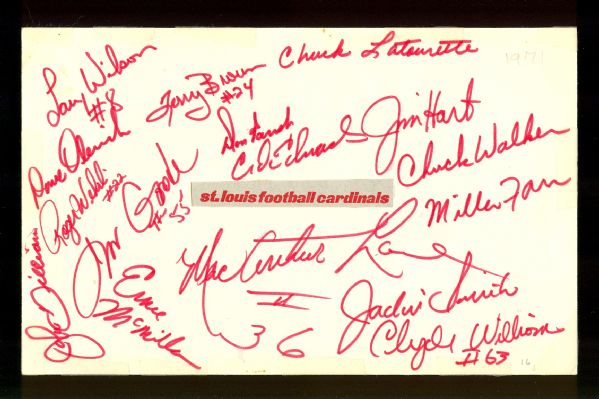 Chuck Latourette
1971
Larry Wilson
#8
Terry Brown
#24
Jim Hart
Dave Olerich
Don Parish
Chuck Walker
Roger Wehrli
#22
Goode
#55
st.louis football cardinals
Miller Farr
MacArthur Lane
II
36
Ernie
McMillan
Jackie Smith
Clyde Williams
#63
16